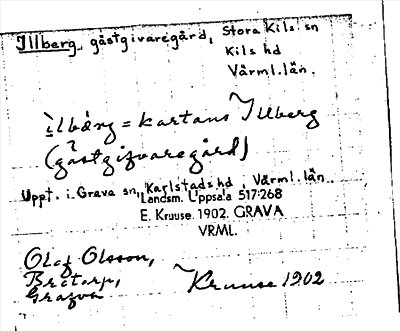 Illberg, gästgivaregård, Stora Kils sn
Kils hd
Värml. län.
ìlbärg = kartans Illberg
(gästgifvaregård)
Uppt. i Grava sn, Karlstads hd, Värml. län
Landsm. Uppsala 517:268
E. Kruuse. 1902. GRAVA
VRML.
Olof Olsson,
Bratorp,
Grafva
Kruuse 1902